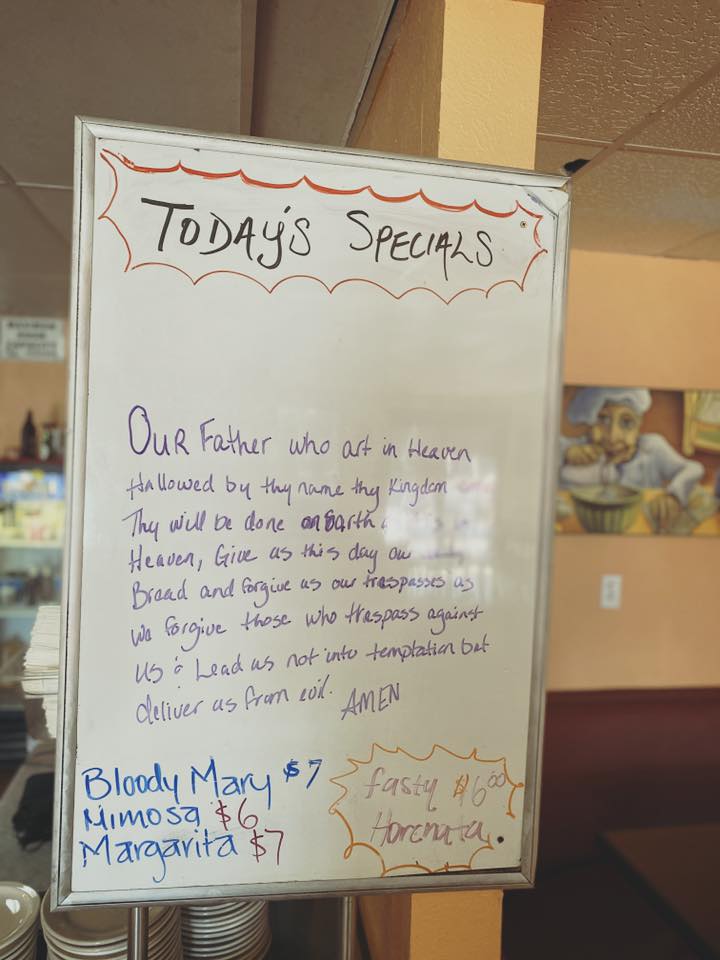 TODAY'S SPECIALS
OUR Father who art in Heaven
Hallowed by thy name thy Kingdom
Thy will be done on Earth
Heaven, Give us this day our
Bread and forgive us our trespasses as
we forgive those who trespass against
us & Lead us not into temptation but
deliver us from evil. AMEN
Bloody Mary $7
Mimosa $6
Margarita $7
fasty $6.00
Horchata